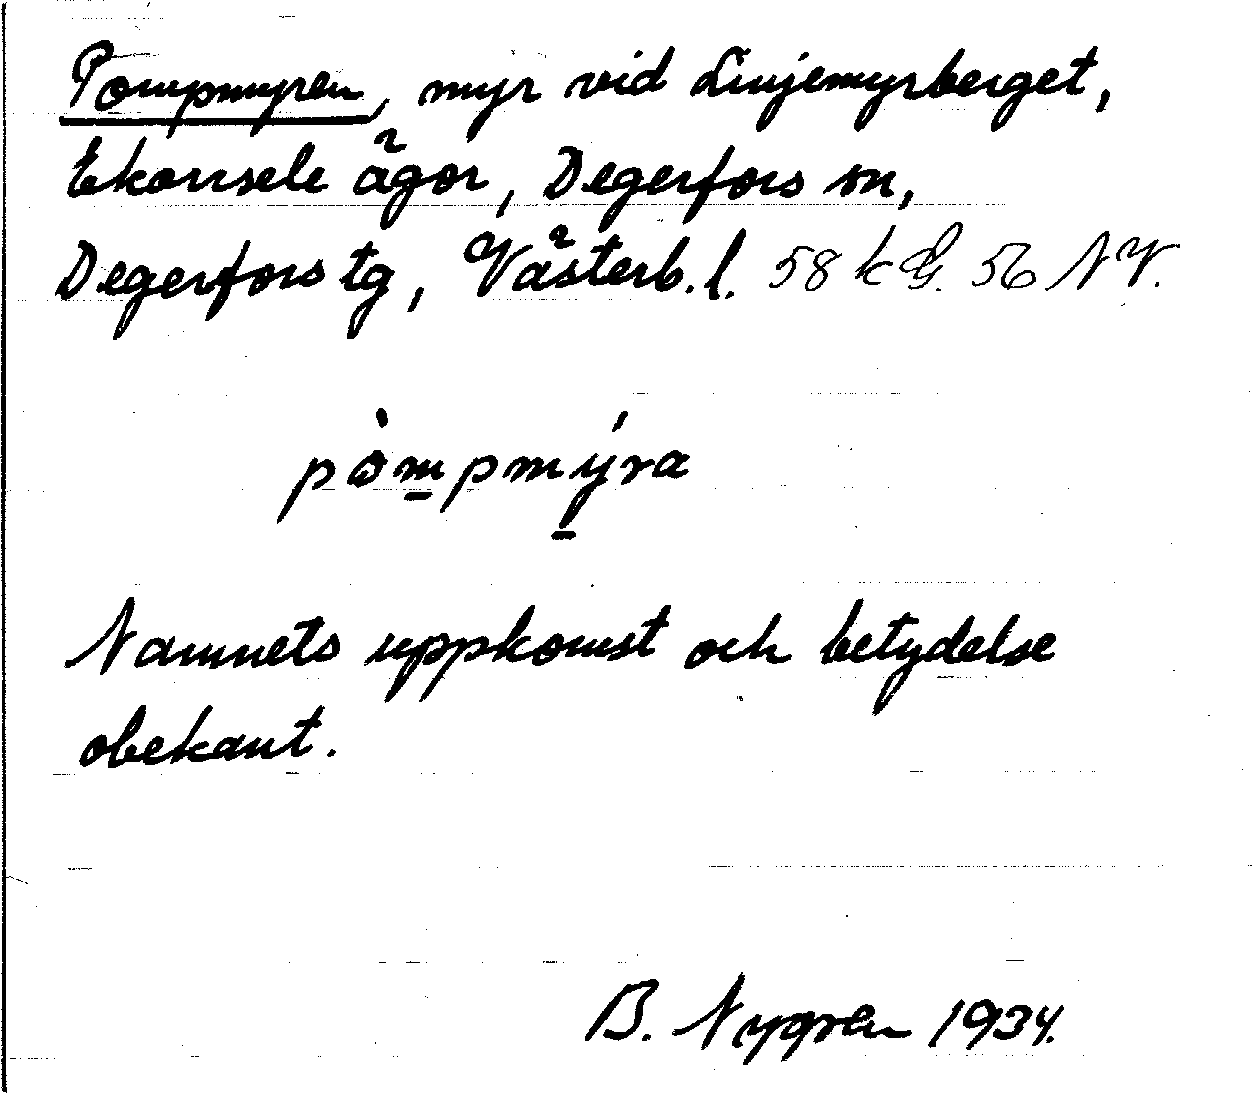 Pompmyren, myr vid Linjemyrberget,
Ekorrsele ägor, Degerfors sn,
Degerfors tg, Västerb. l. 58 k G. 56 NV.
pòmpmýra
Namnets uppkomst och betydelse
obekant.
B. Nygren 1934.